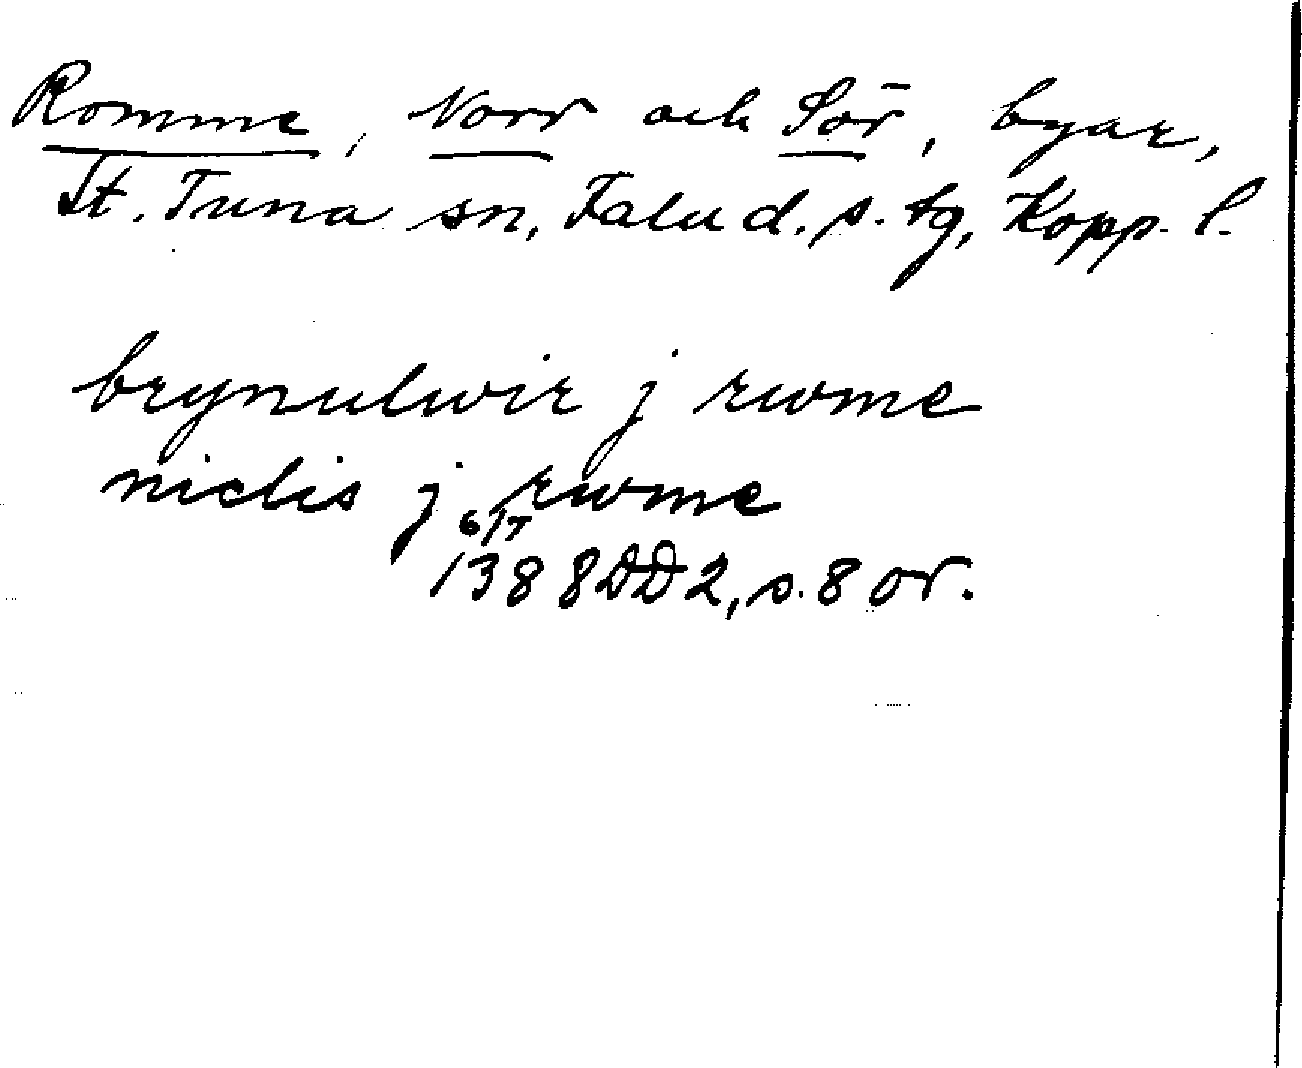 Romme, Norr och Sör, byar,
St. Tuna sn, Falu d. s. tg, Kopp. l.
brynulwir j rwme
niclis j rwme
6/7
1388 DD 2, s. 8 or.